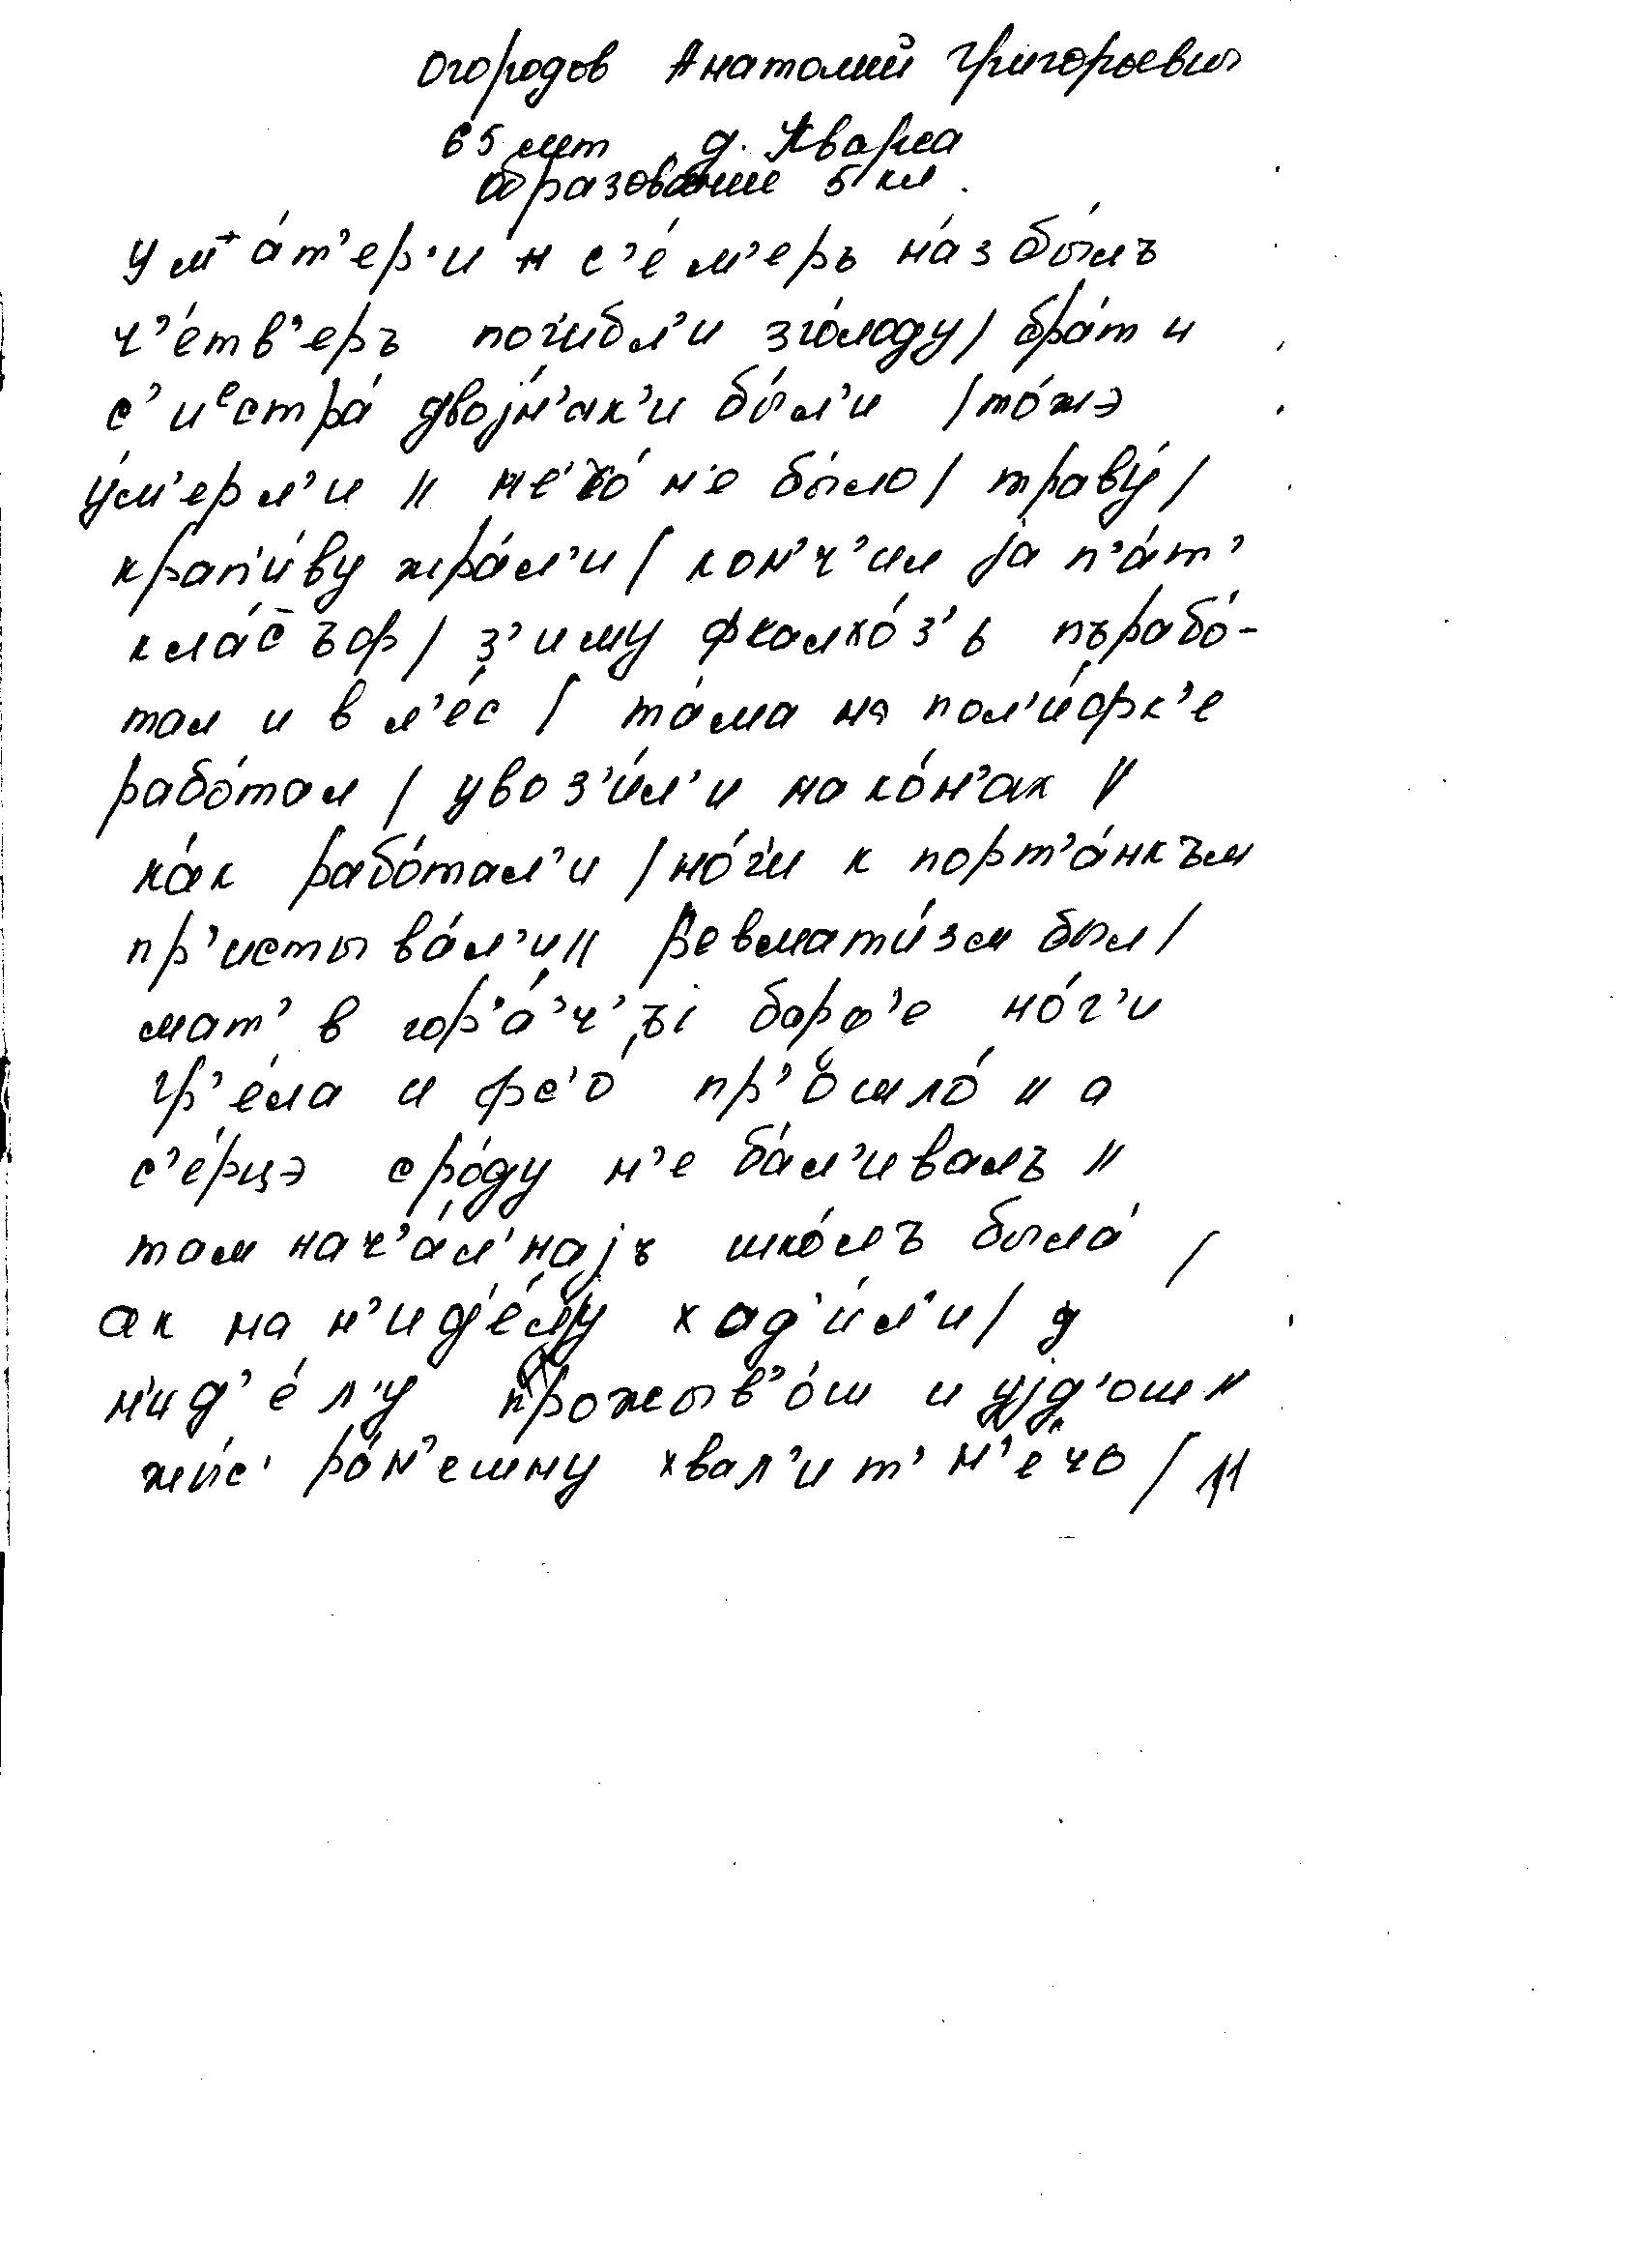 Огородов Анатолий Григорьевич
65 лет д. Кварса
образование 5 кл.
у ма́т'ер'и с'е́м'еръ на́з бы́лъ
ч'е́тв'еръ поги́бл'и зго́лоду / бра́т и
с'иᵉстра́ двојн'ак'и бы́л'и / то́жэ
у́м'ерл'и // не́чо н'е бы́ло / траву́ /
крап'и́ву жра́л'и / кон'ч'ил ја п'а́т'
кла́с̄ъф / з'иму фкалхо́з'ь пърабо́-
тал и в л'е́с / та́ма на пол'и́фк'е
рабо́тал / увоз'и́л'и на ко́н'ах //
ка́к рабо́тал'и / но́г'и к порт'а́нкъм
пр'истыва́л'и // ревмати́зм был /
мат' в гор'а́'ч'ъј бард'е но́г'и
гр'е́ла и фс'о́ пр'ошло́ // а
с'е́рцэ сро́ду н'е ба́л'ивалъ //
там нач'а́л'најъ шко́лъ была́ /
ак на н'ид'е́лу ход'и́л'и /
н'ид'е́л'у прожыв'о́ш и ујд'ош //
жы́с' ра́н'ешну хвал'ит' н'е́чо / //